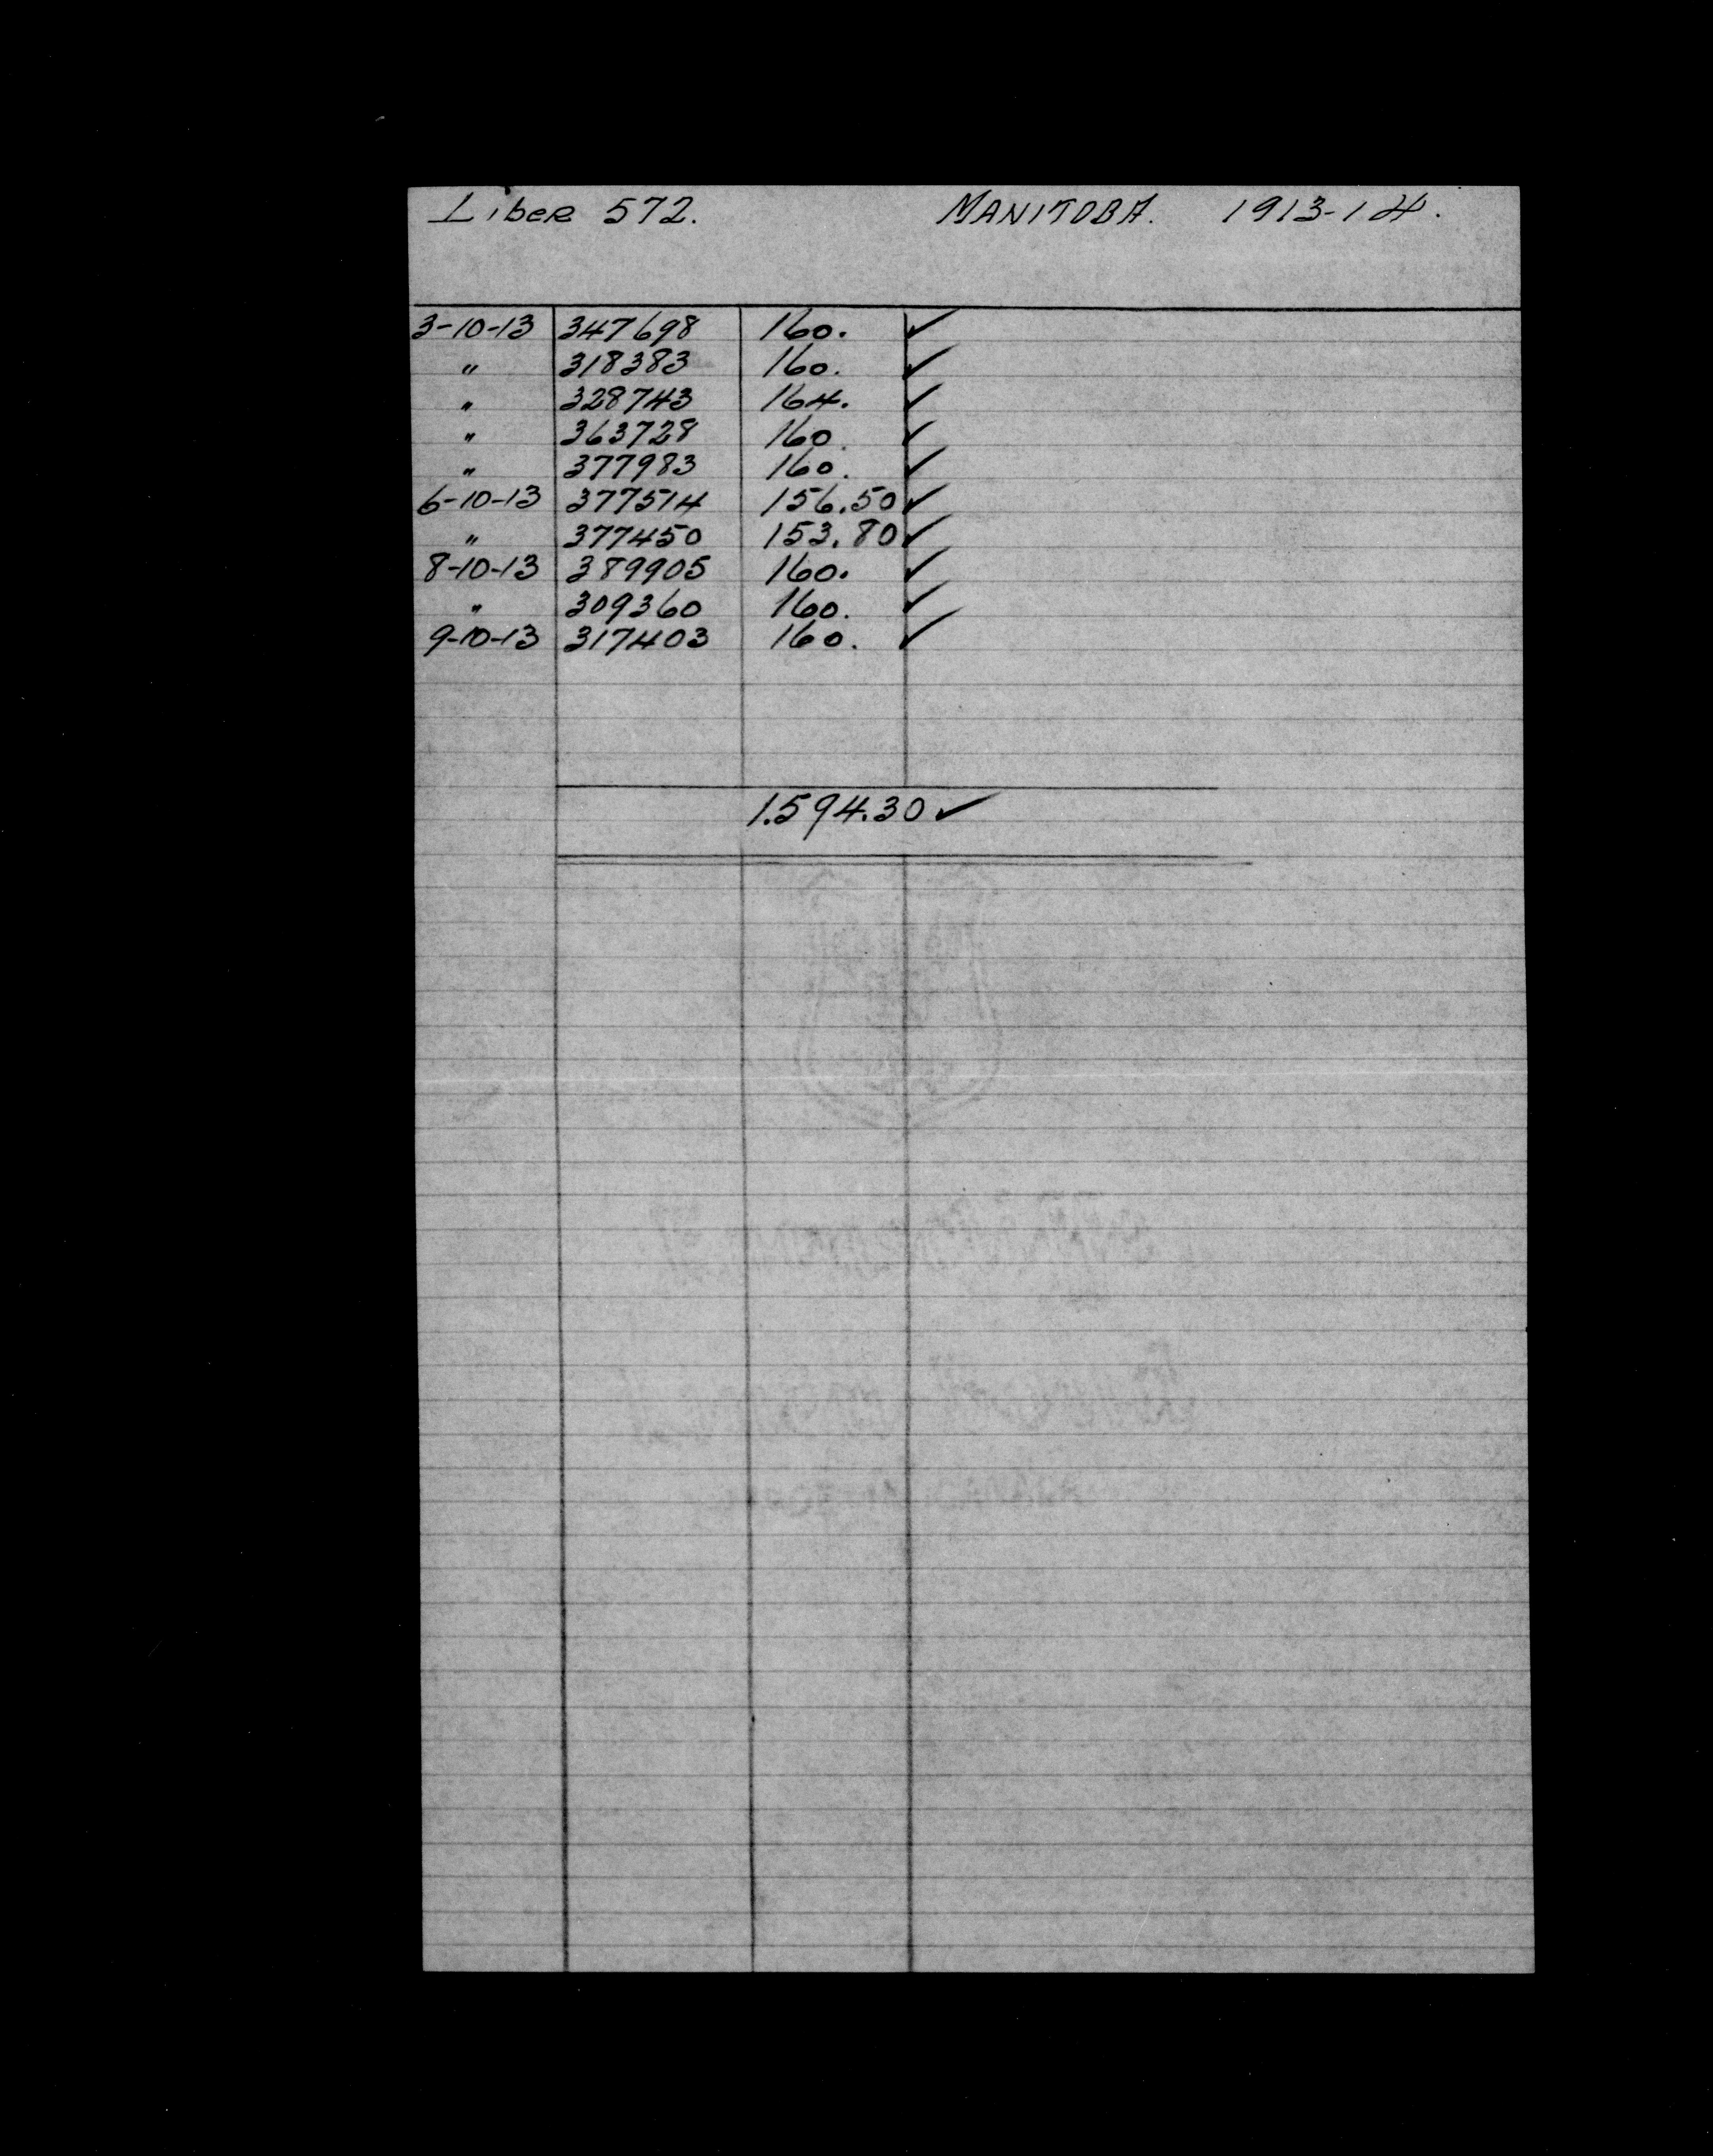 Liber 572. MANITOBA. 1913-14.
3-10-13 347698 160. ✓
" 318383 160. ✓
" 328743 164. ✓
" 363728 160. ✓
" 377983 160. ✓
6-10-13 377514 156.50 ✓
" 377450 153.80 ✓
8-10-13 389905 160. ✓
" 309360 160. ✓
9-10-13 317403 160. ✓
1.594.30 ✓